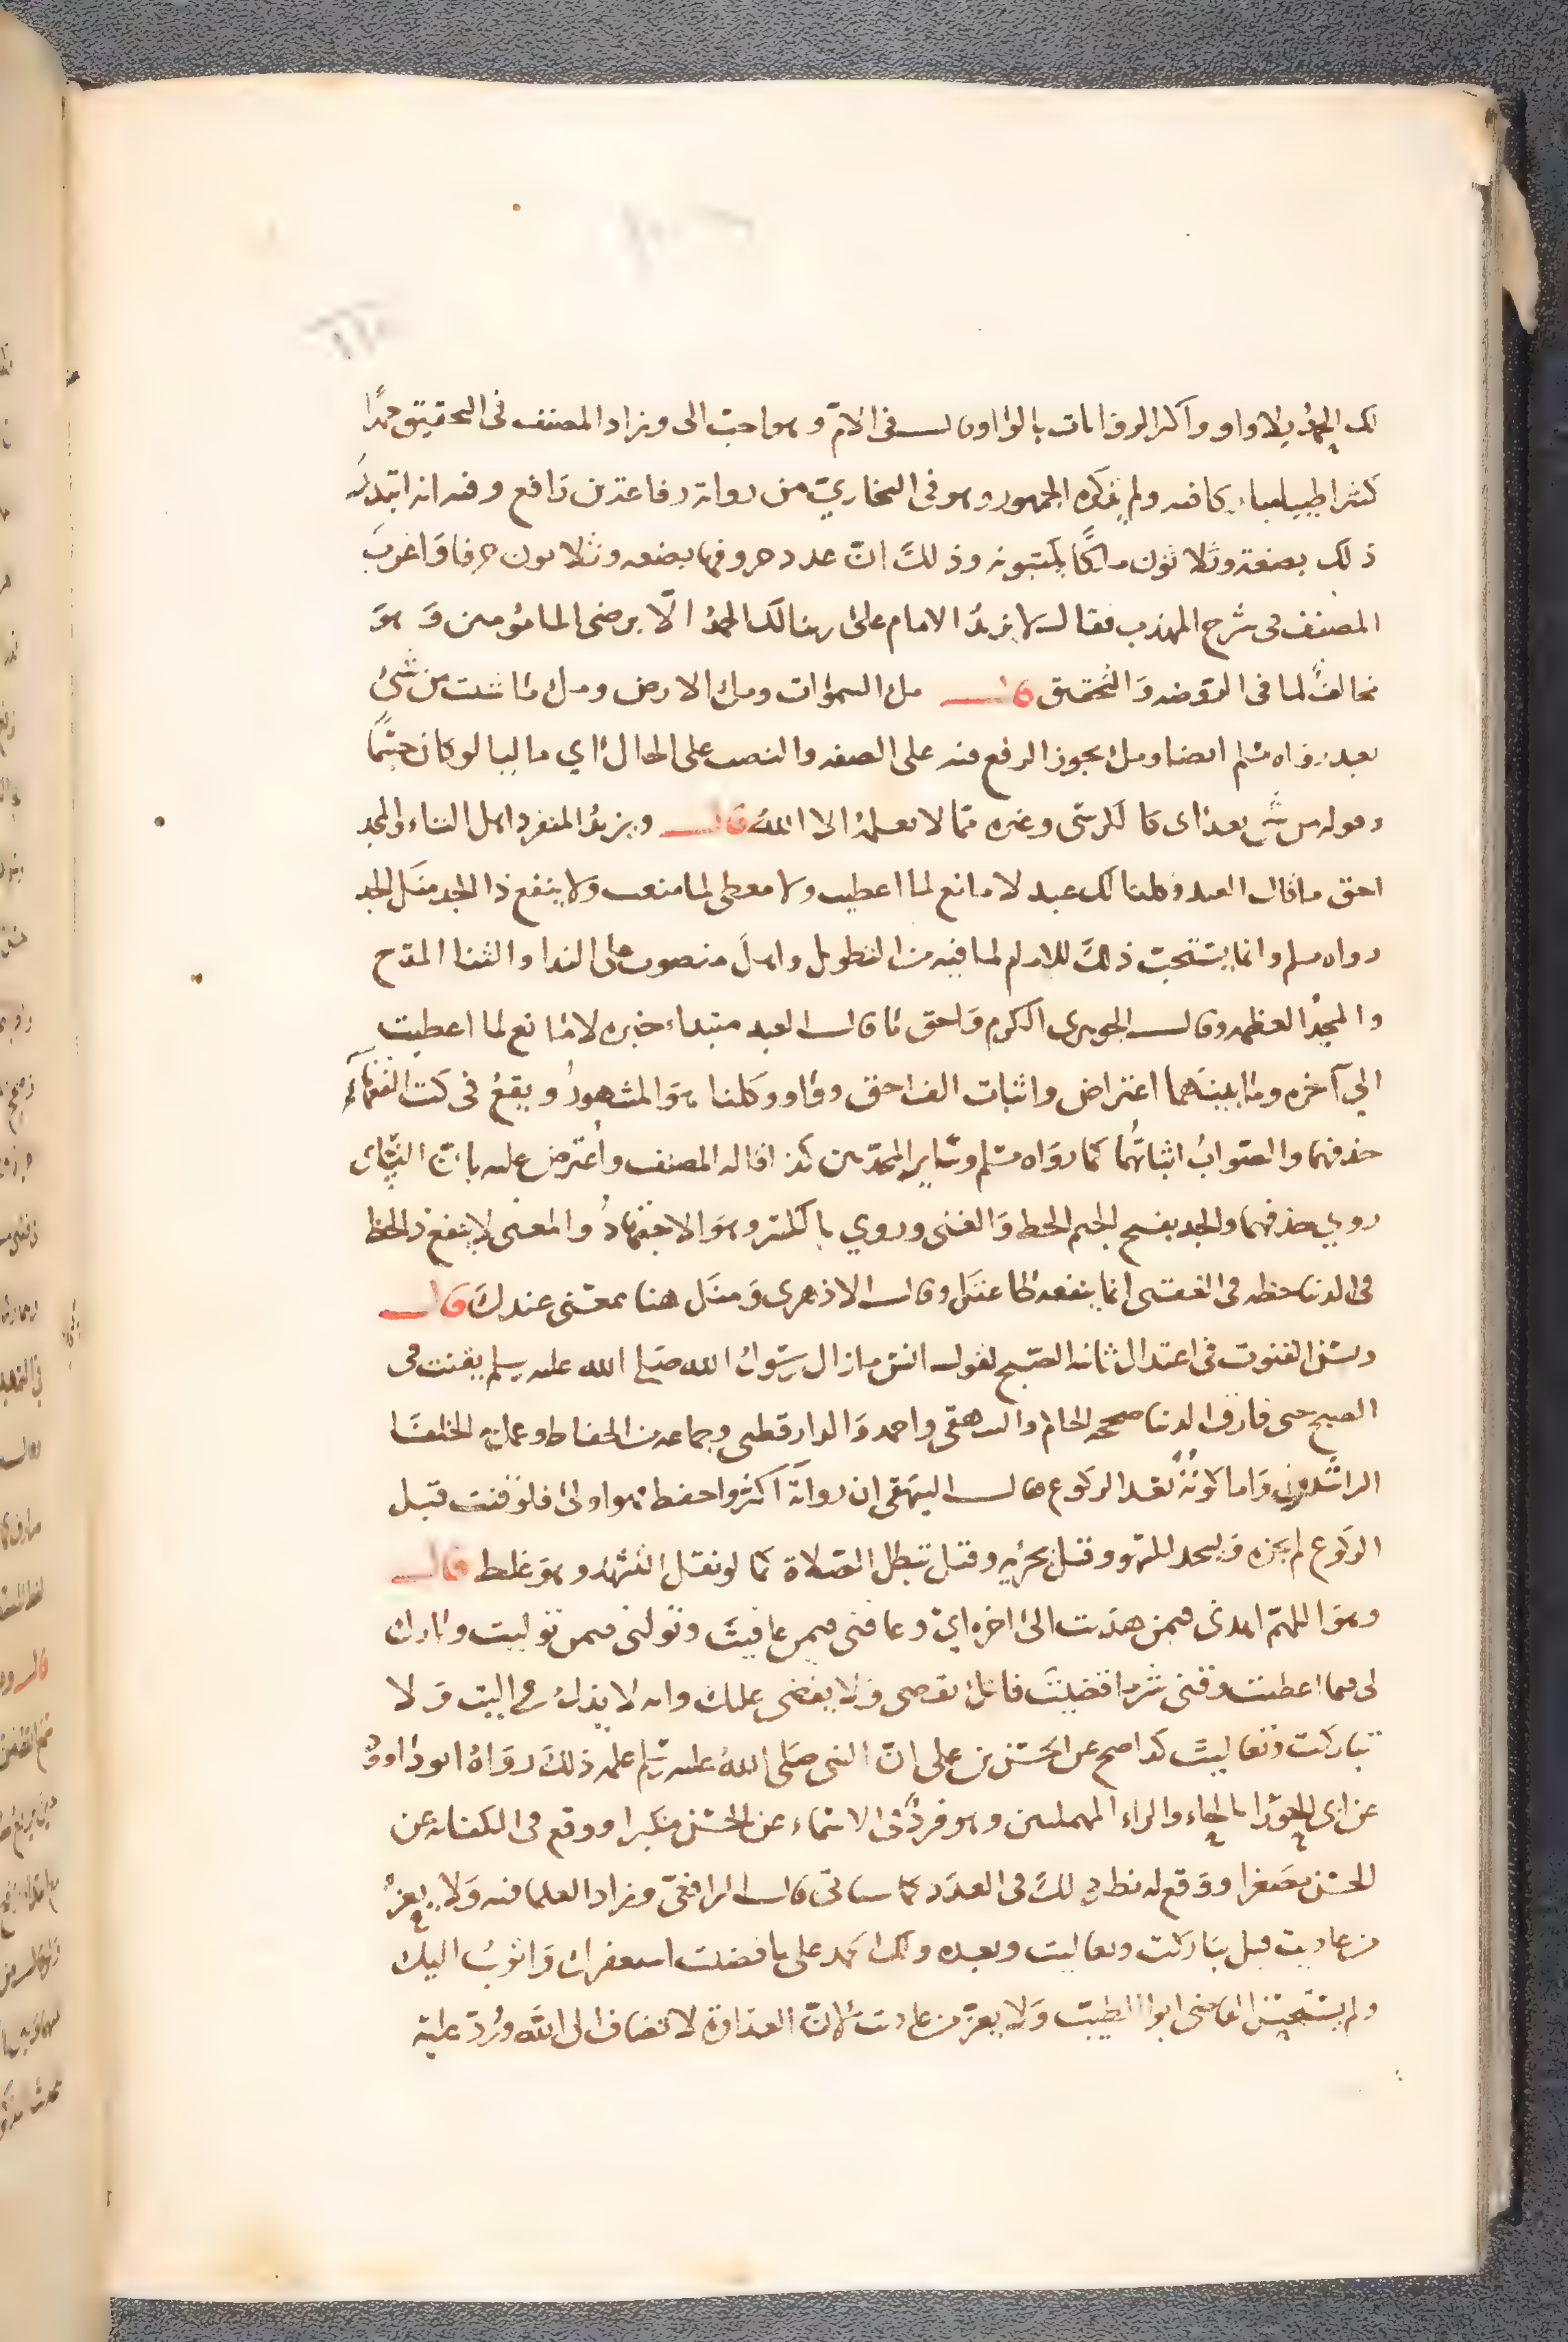 لك الحمد بلا واو واكثر الروايات بالواو قال في الام وهو احب الى وزاد المصنف في التحقيق حمدا
كثيرا طيبا مباركا فيه ولم يذكره الجمهور وهو في البخاري من رواية رفاعة بن رافع وفيه انه ابتدر
ذلك بضعة وثلاثون ملكا يكتبونه وذلك ان عدد حروفها بضعه وثلاثون حرفا واغرب
المصنف في شرح المهذب فقال لا يزيد الامام على ربنا لك الحمد الا برضى المامومين وهو
مخالف لما في الروضه والتحقيق قال ملء السموات وملء الارض وملء ما شئت من شئ
بعد رواه مسلم ايضا وملء يجوز الرفع فيه على الصفه والنصب على الحال اي ماليا لو كان جسما
وقوله من شئ بعد اى كالكرسى وغيره مما لا يعلمه الا الله قال ويزيد المنفرد اهل الثناء والمجد
احق ما قال العبد وكلنا لك عبد لا مانع لما اعطيت ولا معطى لما منعت ولا ينفع ذا الجد منك الجد
رواه مسلم وانما يستحب ذلك للامام لما فيه من التطويل واهل منصوب على الندا والثنا المدح
والمجد العظمه وقال الجوهرى الكرم واحق ما قال العبد مبتداء خبره لا مانع لما اعطيت
الي آخره وما بينهما اعتراض واثبات الف احق وواو وكلنا هو المشهور ويقع في كتب الفقهاء
حذفهما والصواب اثباتهما كما رواه مسلم وساير المحدثين كذا قاله المصنف واعترض عليه بان النسائى
روي حذفهما والجد بفتح الجيم الحظ والغنى وروي بالكسر وهو الاجتهاد والمعنى لا ينفع ذا الحظ
في الدنيا حظه في العقبى انما ينفعه طاعتك وقال الازهرى ومنك هنا بمعنى عندك قال
ويسن القنوت في اعتدال ثانيه الصبح لقول انس ما زال رسول الله صلى الله عليه وسلم يقنت في
الصبح حتى فارق الدنيا صححه الحاكم والبيهقى واحمد والدارقطنى وجماعه من الحفاظ وعمل به الخلفا
الراشدون واما كونه بعد الركوع فقال البيهقى ان رواته اكثر واحفظ فهو اولى فلو قنت قبل
الركوع لم يجزه ويسجد للسهو وقيل يجزيه وقيل تبطل الصلاة كما لو نقل التشهد وهو غلط قال
وهو اللهم اهدنى فيمن هديت الى اخره اي وعافنى فيمن عافيت وتولنى فيمن توليت وبارك
لى فيما اعطيت وقنى شر ما قضيت فانك تقضى ولا يقضى عليك وانه لا يذل من واليت ولا
تباركت وتعاليت كذا صح عن الحسن بن على ان النبى صلى الله عليه وسلم علمه ذلك رواه ابو داوود
عن ابى الحورا بالحاء والراء المهملتين وهو فرد فى الاسماء عن الحسن مكبرا ووقع فى الكفايه عن
الحسن مصغرا ووقع له نظير ذلك فى العدد كما سياتى قال الرافعى وزاد العلما فيه ولا يعز
من عاديت قبل تباركت وتعاليت وبعده ولك الحمد على ما قضيت استغفرك واتوب اليك
ولم يستحسن القاضى ابو الطيب ولا يعز من عاديت لان العداوة لا تضاف الى الله ورد عليه